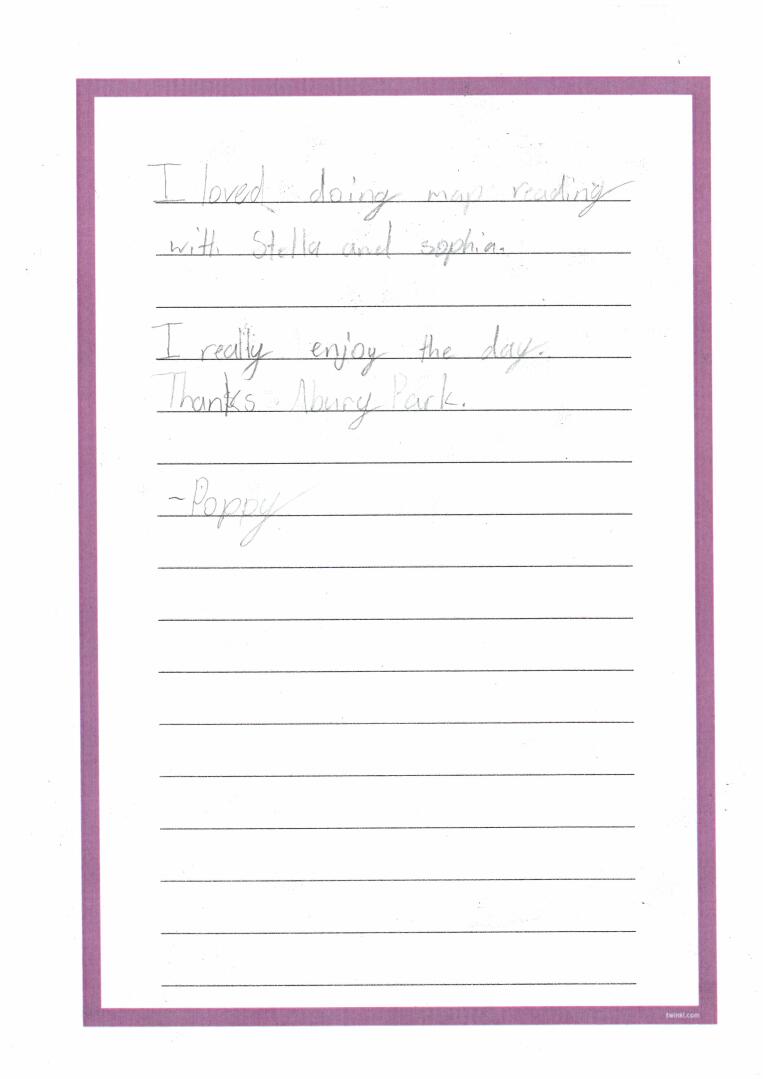 I loved doing map reading
with Stella and sophia.
I really enjoy the day.
Thanks Abury Park.
~Poppy
twinkl.com